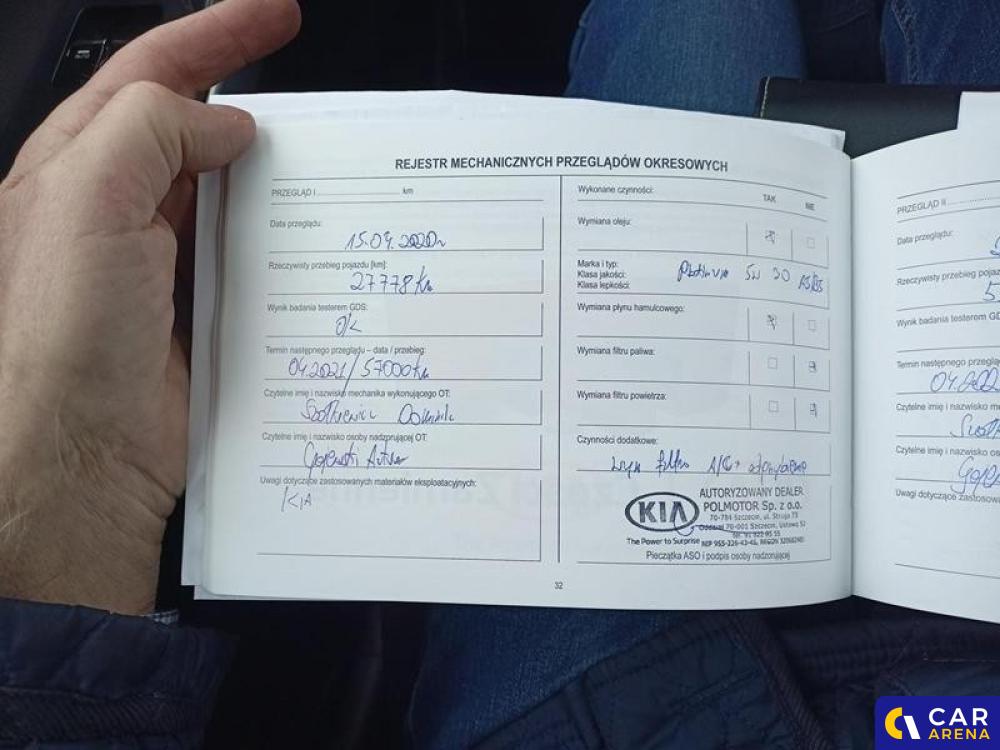 REJESTR MECHANICZNYCH PRZEGLĄDÓW OKRESOWYCH
PRZEGLĄD I .............................. km
Data przeglądu:
15.04.2020r
Rzeczywisty przebieg pojazdu [km]:
27778 km
Wynik badania testerem GDS:
O/K
Termin następnego przeglądu – data / przebieg:
04.2021/57000km
Czytelne imię i nazwisko mechanika wykonującego OT:
Dominik
Czytelne imię i nazwisko osoby nadzorującej OT:
Gajewski Artur
Uwagi dotyczące zastosowanych materiałów eksploatacyjnych:
KIA
Wykonane czynności:
TAK NIE
Wymiana oleju:
Marka i typ:
Klasa jakości:
Klasa lepkości:
Platinum 5W 30
Wymiana płynu hamulcowego:
Wymiana filtru paliwa:
Wymiana filtru powietrza:
Czynności dodatkowe:
filtra A/C +
KIA
The Power to Surprise
AUTORYZOWANY DEALER
POLMOTOR Sp. z o.o.
70-784 Szczecin, ul. Struga 73
Oddział 70-001 Szczecin, Ustowo 52
Pieczątka ASO i podpis osoby nadzorującej
32
PRZEGLĄD II
Data przeglądu:
Rzeczywisty przebieg
Wynik badania testerem
Termin następnego
04.2022
Czytelne imię i nazwisko
Czytelne imię i nazwisko
Uwagi dotyczące
CAR
ARENA